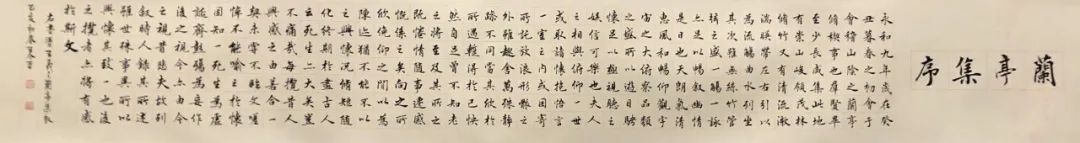 蘭亭集序
永和九年歲在癸
丑暮春之初會于
會稽山陰之蘭亭
脩禊事也羣賢畢
至少長咸集此地
有崇山峻領茂林
脩竹又有清流激
湍暎帶左右引以
為流觴曲水列坐
其次雖無絲竹管
絃之盛一觴一詠
亦足以暢敘幽情
是日也天朗氣清
惠風和暢仰觀宇
宙之大俯察品類
之盛所以遊目騁
懷足以極視聽之
娛信可樂也夫人
之相與俯仰一世
或取諸懷抱悟言
一室之內或因寄
所託放浪形骸之
外雖趣舍萬殊靜
躁不同當其欣於
所遇暫得於己快
然自足不知老
情隨事遷感
慨係之矣向之所
欣俛仰之間以為
陳迹猶不能不以
之興懷況脩短隨
化終期於盡古人
云死生亦大矣豈
不痛哉每攬昔人
興感之由若合一
契未嘗不臨文嗟
悼不能喻之於懷
固知一死生為虛
誕齊彭殤為妄作
後之視今亦由今
之視昔悲夫故列
敘時人錄其所述
雖世殊事異所以
興懷其致一也後
之攬者亦將有感
於斯文